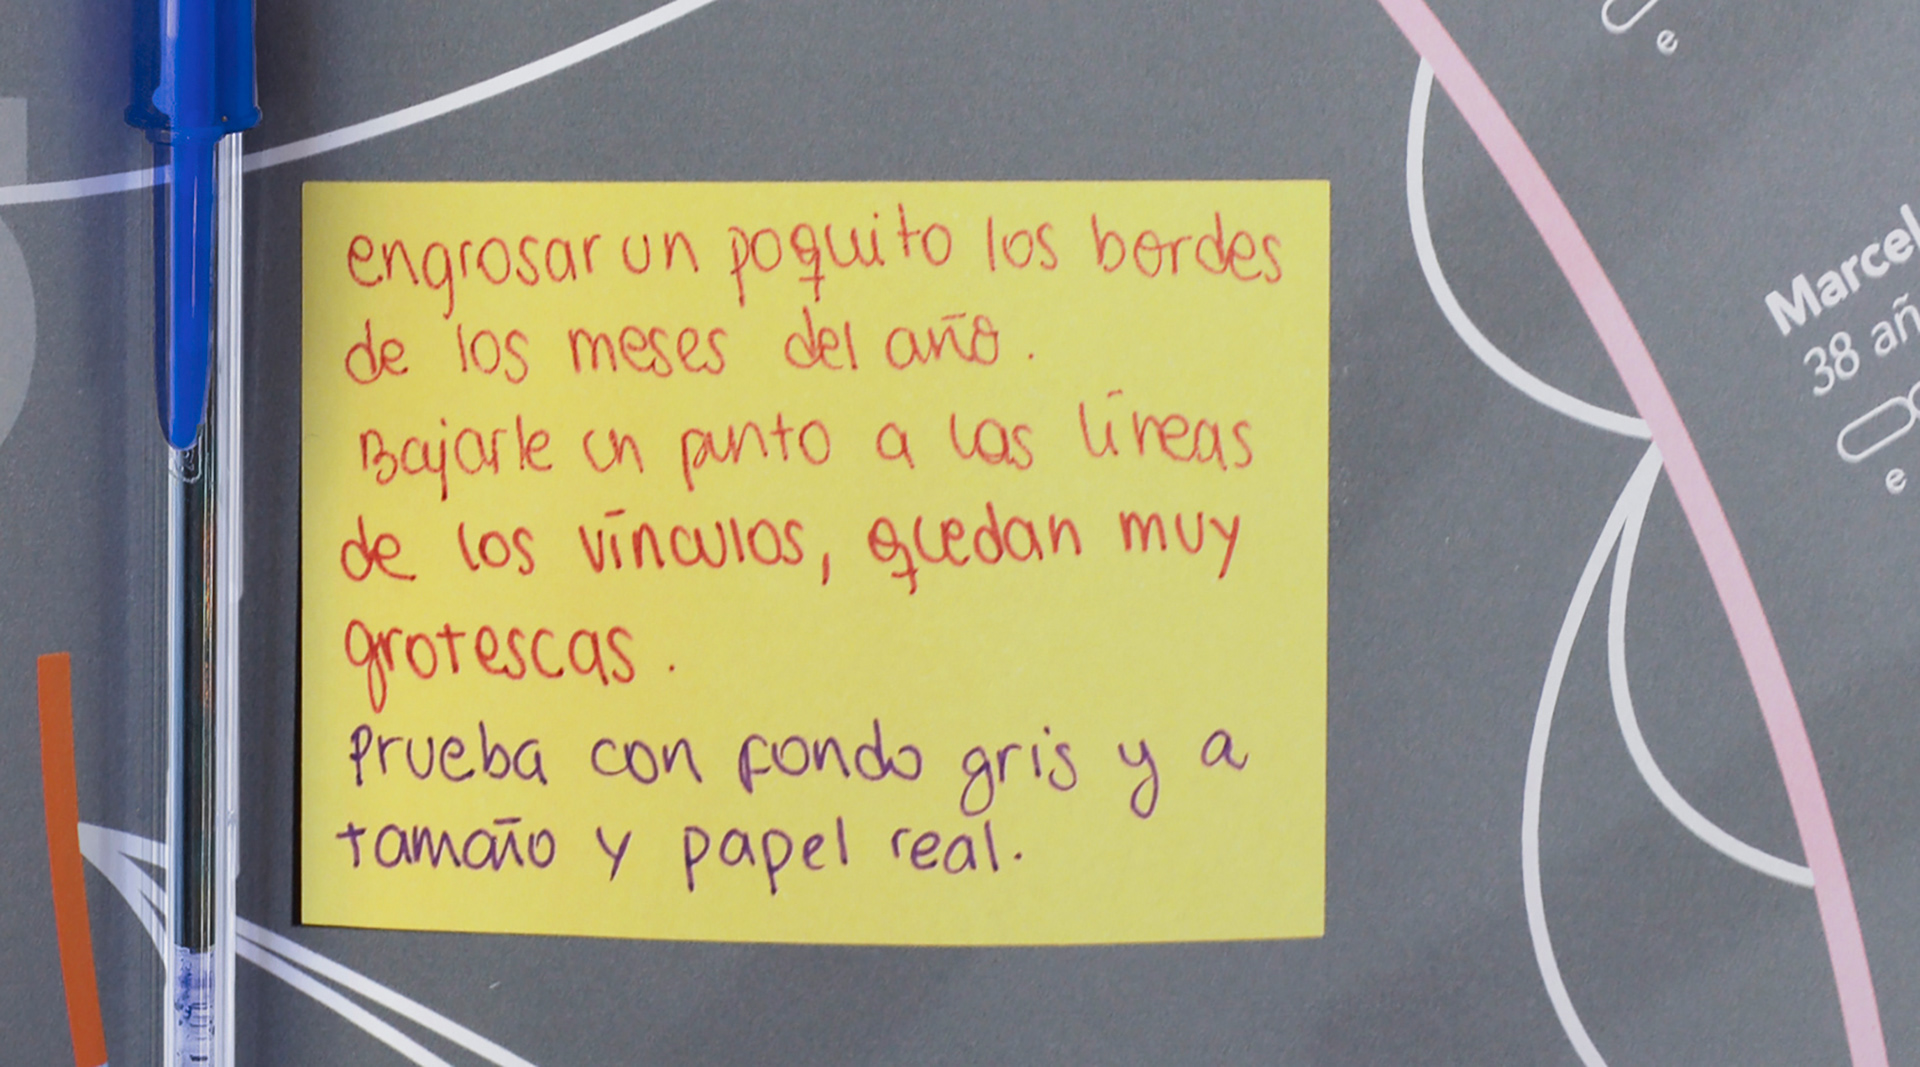 engrosar un poquito los bordes
de los meses del año.
Bajarle un punto a las líneas
de los vínculos, quedan muy
grotescas.
Prueba con fondo gris y a
tamaño y papel real.
e
Marcel
38 añ
e